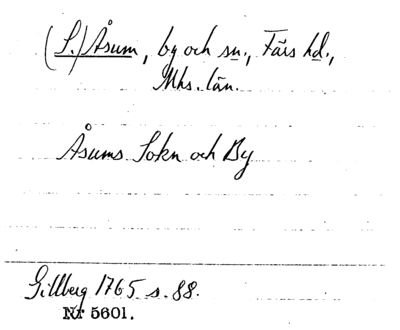 (S.) Åsum, by och sn., Färs hd.,
Mhs. län.
Åsums Sokn och By
Gillberg 1765 s. 88.
Nr 5601.